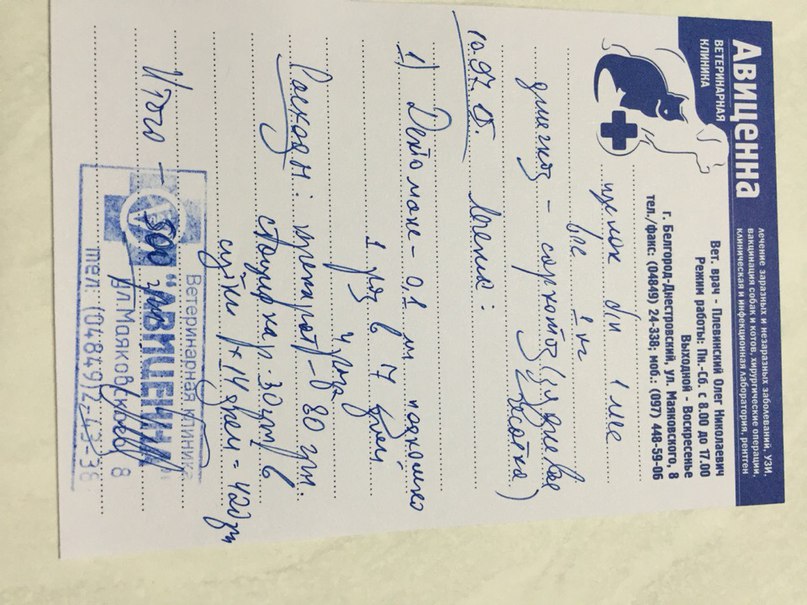 Авиценна
ВЕТЕРИНАРНАЯ
КЛИНИКА
лечение заразных и незаразных заболеваний, УЗИ,
вакцинация собак и котов, хирургические операции,
клиническая и инфекционная лаборатория, рентген
Вет. врач - Плевинский Олег Николаевич
Режим работы: Пн.-Сб. с 8.00 до 17.00
Выходной - Воскресенье
г. Белгород-Днестровский, ул. Маяковского, 8
тел./факс: (04849) 24-338; моб.: (097) 448-59-06
щенок б/п 1 мес
вес 1 кг
диагноз - саркоптоз (
чесотка)
10.07
1) Дектомакс - 0,1 мл подкожно
1 раз в 7 дней
4 раза
Расходы: препарат - 80 грн.
стационар 30 грн/в
сутки х 14 дней = 420 грн
Итого - 500 грн
Ветеринарная клиника
"АВИЦЕННА"
ул.Маяковского 8
тел. (04849)2-43-38